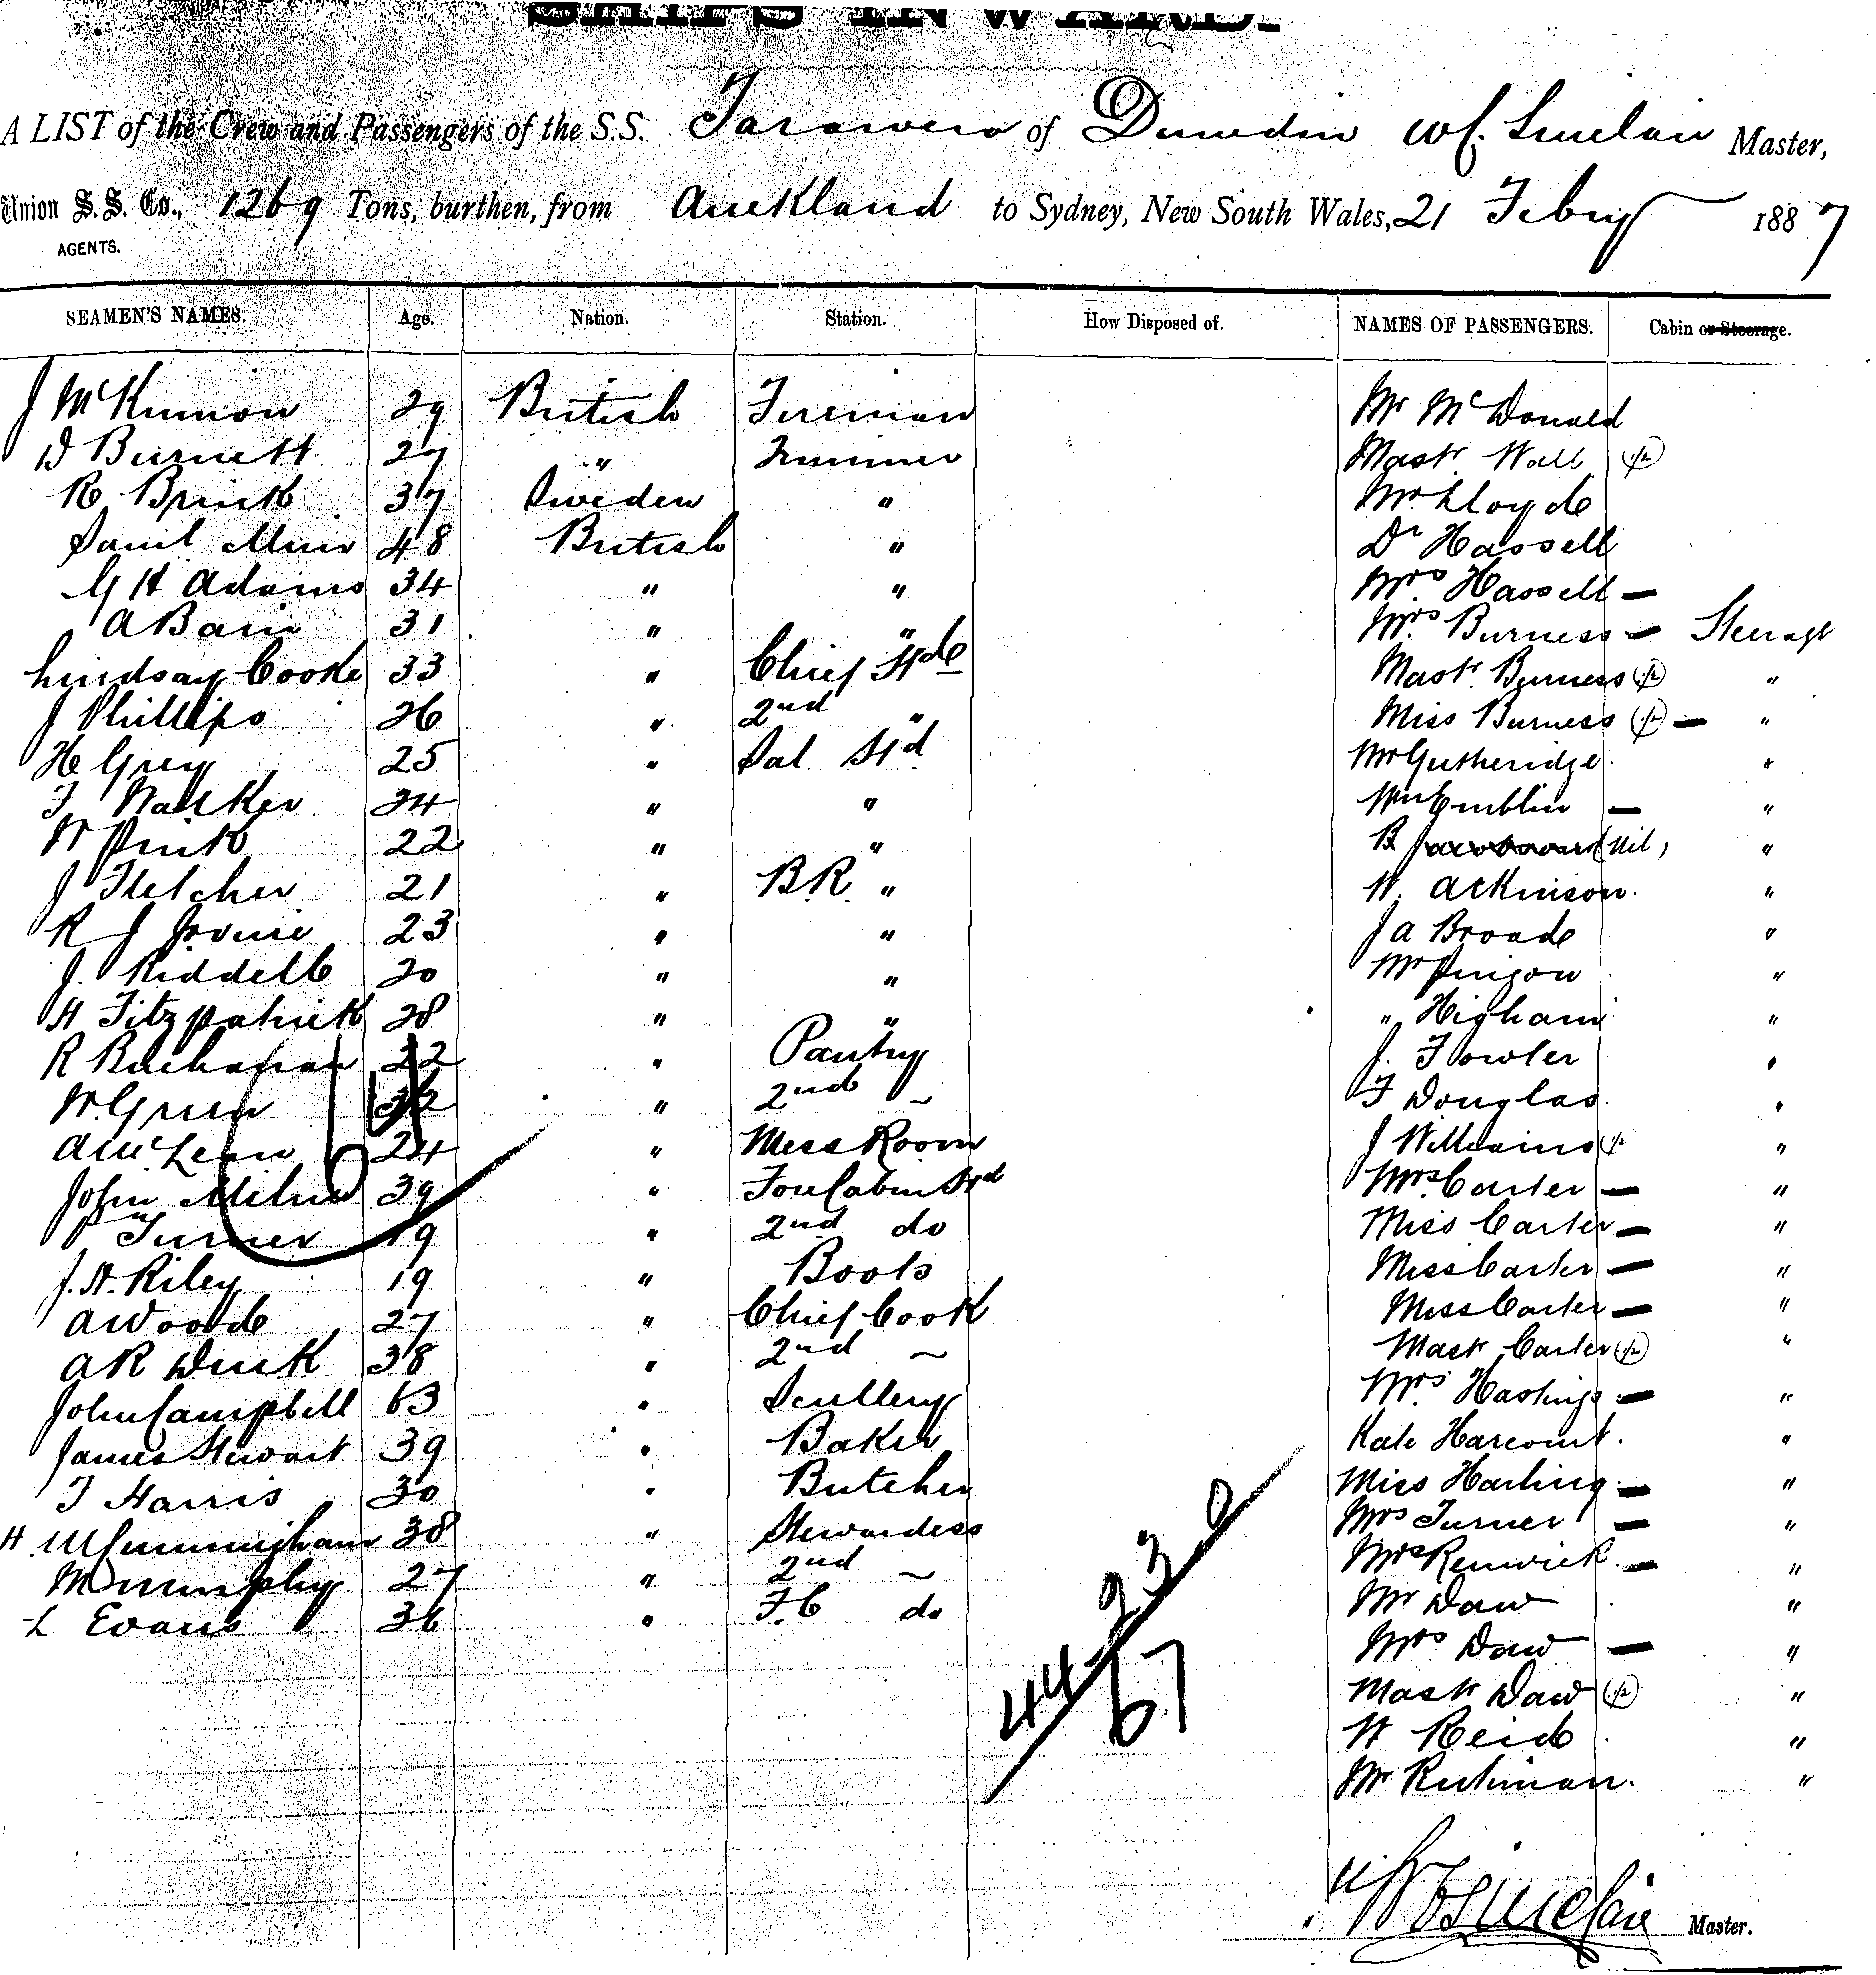 SHIPS INWARD.
A LIST of the Crew and Passengers of the S.S. Tarawera of Dunedin W.C. Sinclair Master,
Union S. S. Co., 1269 Tons, burthen, from Auckland to Sydney, New South Wales, 21 Febry 1887
AGENTS.
SEAMEN'S NAMES. Age. Nation. Station. How Disposed of. NAMES OF PASSENGERS. Cabin or Steerage.
J McKinnon 29 British Fireman Mr McDonald
D Burnett 27 " Trimmer Mastr Wall (1/2)
R Brink 37 Sweden " Mr Lloyd
Saml Muir 48 British " Dr Hassell
G H Adams 34 " " Mrs Hassell —
A Bain 31 " " Mrs Burness — Steerage
Lindsay Cooke 33 " Chief Stde Mastr Burness (1/2) "
J Phillips 26 " 2nd " Miss Burness (1/2) — "
H Grey 25 " Sal Std Mr Gutheridge "
F Walker 24 " " — "
W Pink 22 " " B (Nil) "
J Fletcher 21 " B.R. " W. Atkinson "
R J Irvine 23 " " J A Broad "
J. Riddell 20 " " Mr "
H Fitzpatrick 28 " " " Higham "
R Buchanan 22 " Pantry J. Fowler "
W. Green 32 " 2nd ~ F Douglas "
A McLean 24 " Mess Room J Williams "
John Milne 39 " Fore Cabin Std Mrs Carter — "
P Turner 19 " 2nd do Miss Carter — "
J. H. Riley 19 " Boots Miss Carter — "
A Wood 27 " Chief Cook Miss Carter — "
A R 38 " 2nd ~ Mastr Carter (1/2) "
John Campbell 63 " Scullery Mrs Hastings — "
James Stewart 39 " Baker Kate Harcourt. "
T Harris 30 " Butcher Miss — "
H. M Cunningham 38 " Stewardess Mrs Turner — "
M Murphy 27 " 2nd ~ Mrs Renwick — "
L Evans 36 " F.C do Mr Daw "
Mrs Daw — "
Mastr Daw (1/2) "
W Reid "
Mr "
64
44
23
0
67
W C Sinclair Master.